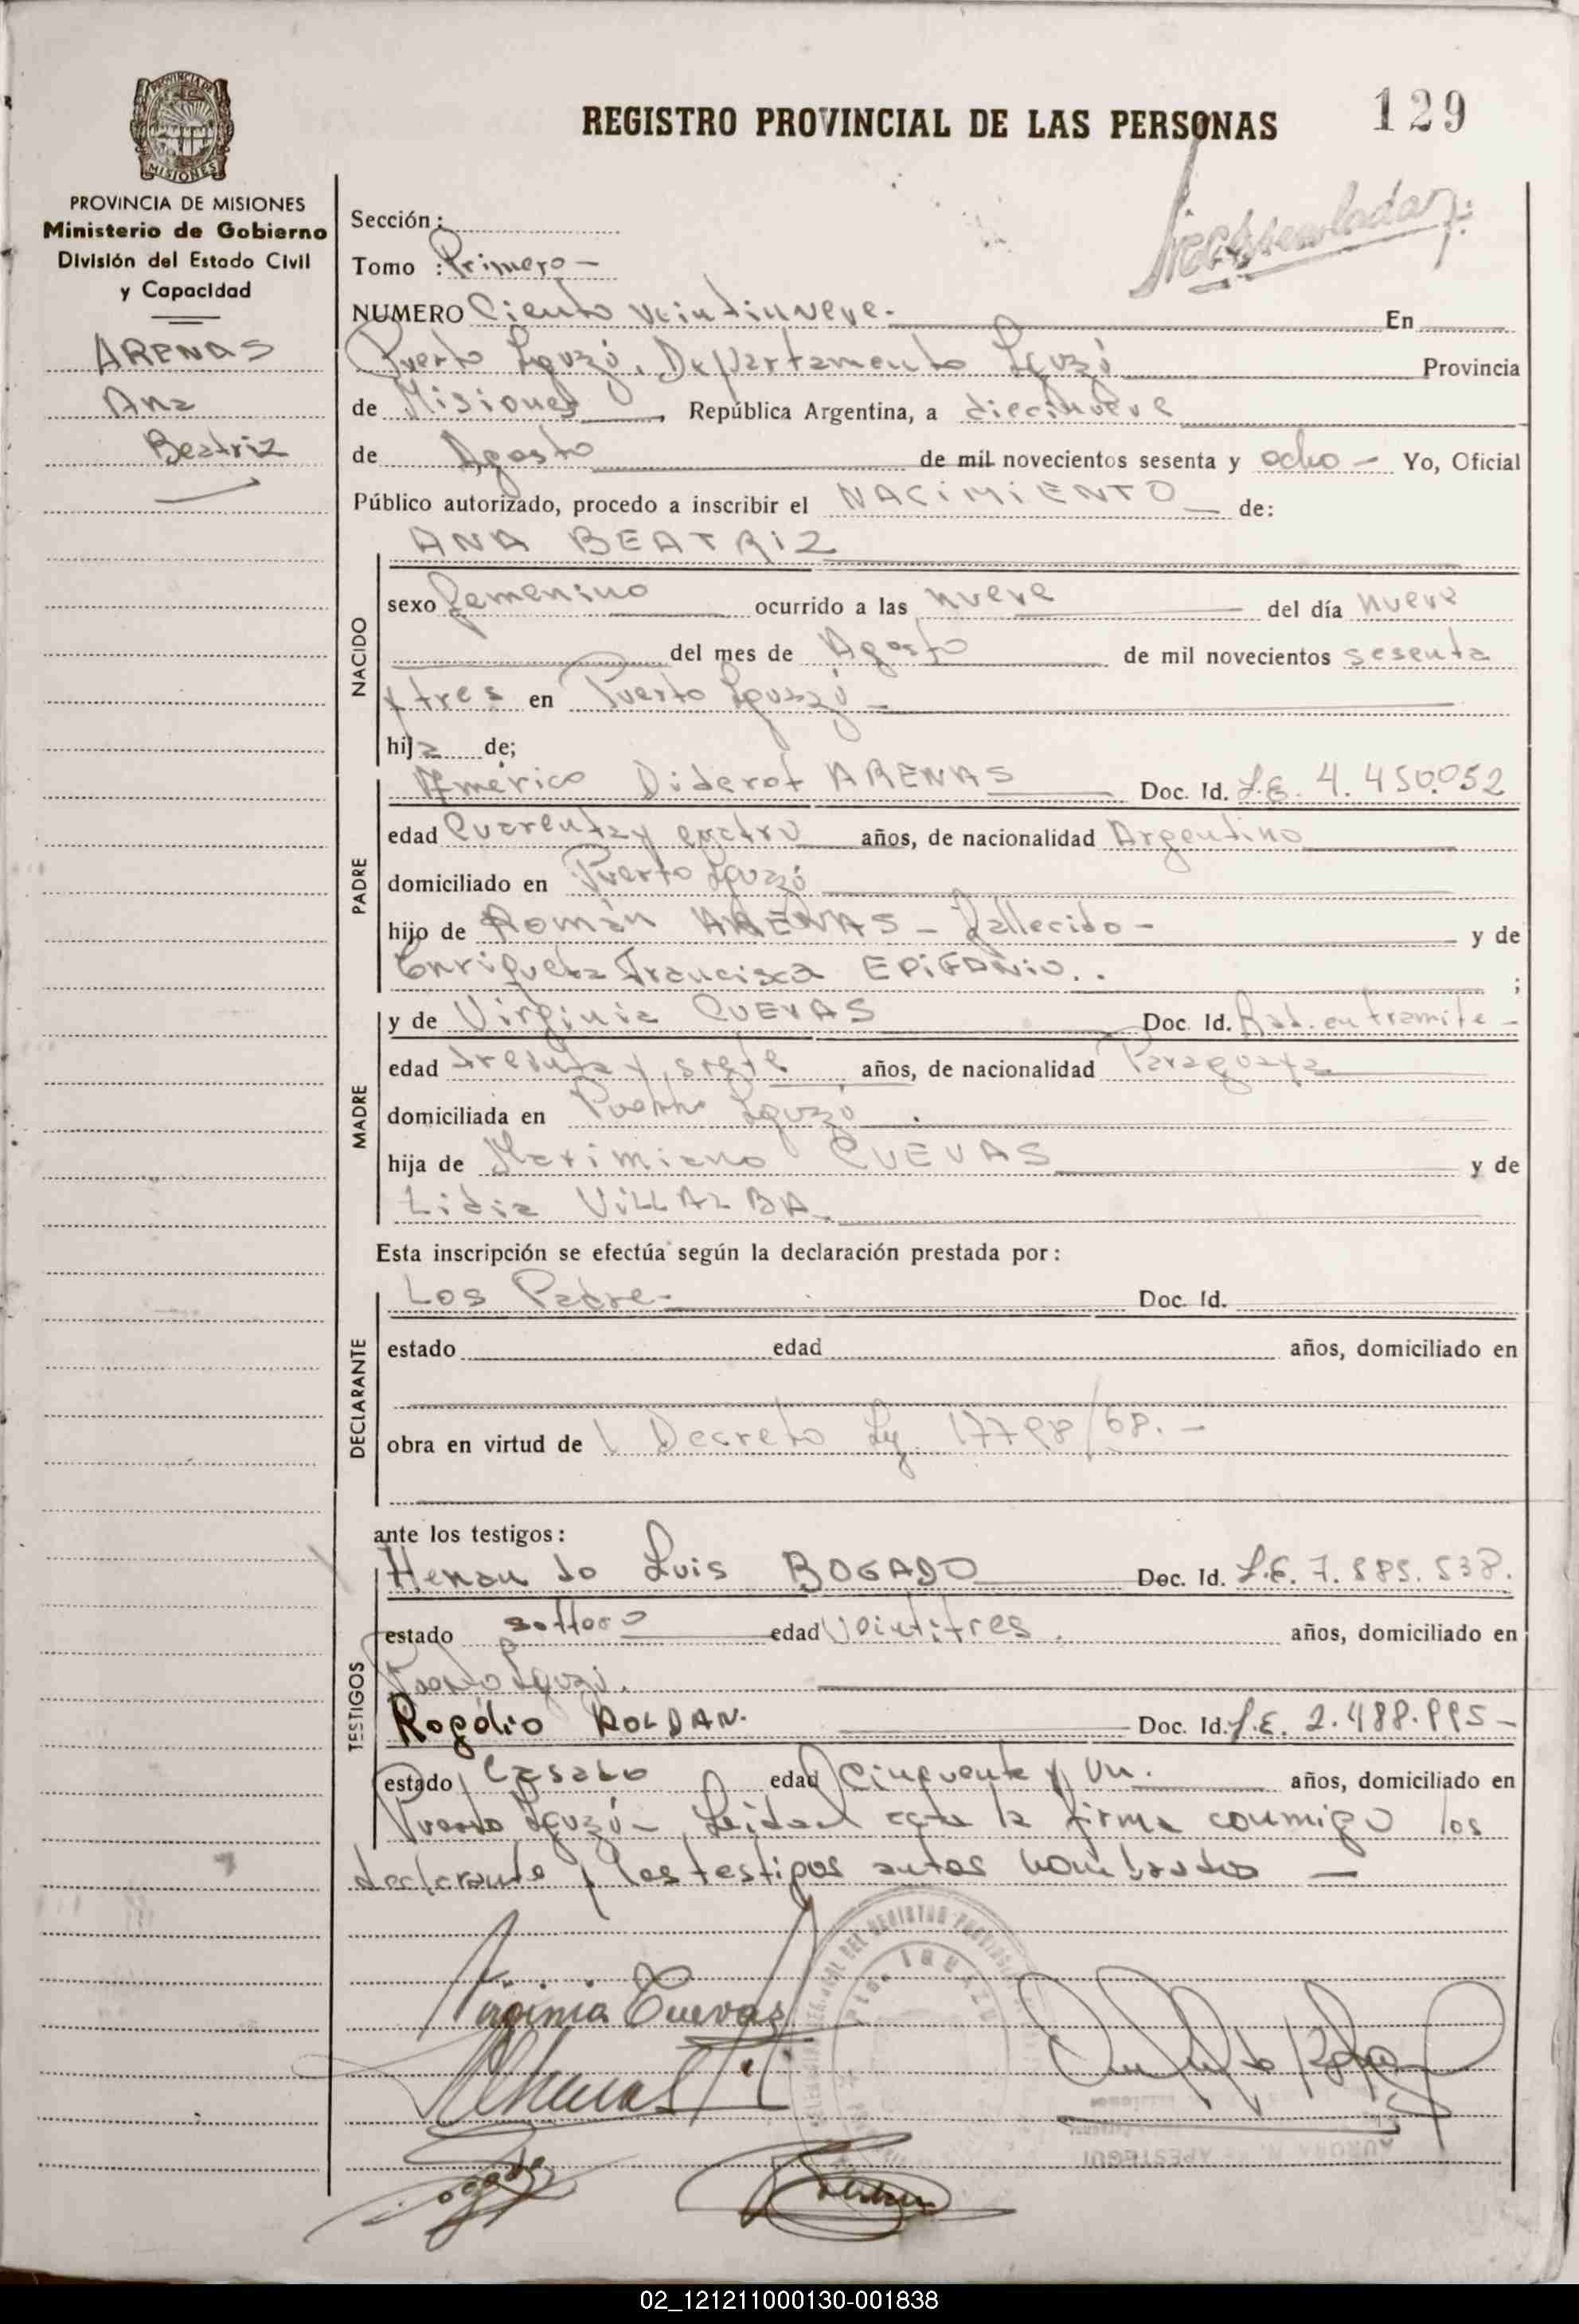 REGISTRO PROVINCIAL DE LAS PERSONAS
129
PROVINCIA DE MISIONES
MISIONES
PROVINCIA DE MISIONES
Ministerio de Gobierno
División del Estado Civil
y Capacidad
ARENAS
Ana
Beatriz
Sección:
Tomo : Primero -
NUMERO Ciento veintinueve. - En
Puerto Iguazú, Departamento Iguazú Provincia
de Misiones, República Argentina, a diecinueve
de Agosto de mil novecientos sesenta y ocho - Yo, Oficial
Público autorizado, procedo a inscribir el NACIMIENTO - de:
NACIDO
ANA BEATRIZ
sexo femenino ocurrido a las nueve del día nueve
del mes de Agosto de mil novecientos sesenta
y tres en Puerto Iguazú -
hija de;
PADRE
Américo Diderot ARENAS Doc. Id. L.E. 4.450.052
edad Cuarenta y cuatro años, de nacionalidad Argentino
domiciliado en Puerto Iguazú
hijo de Román ARENAS - fallecido - y de
Enriqueta Francisca EPIFANIO. . ;
MADRE
y de Virginia CUEVAS Doc. Id. Rad. en tramite -
edad treinta y siete años, de nacionalidad Paraguaya
domiciliada en Puerto Iguazú
hija de Maximiano CUEVAS y de
Lidia VILLALBA
Esta inscripción se efectúa según la declaración prestada por:
DECLARANTE
Los Padre- Doc. Id.
estado edad años, domiciliado en
obra en virtud de Decreto Ley 17798/68. -
ante los testigos:
TESTIGOS
Luis BOGADO Doc. Id. L.E. 7.885.538.
estado soltero edad Veintitres. años, domiciliado en
Puerto Iguazú.
Rogelio ROLDAN. Doc. Id. L.E. 2.488.995 -
estado Casado edad Cincuenta y Un. años, domiciliado en
Puerto Iguazú - Leida el acta la firma conmigo los
declarante y los testigos antes nombrados -
Virginia Cuevas
Arenas
AURORA N. APESTEGUI
02_121211000130-001838